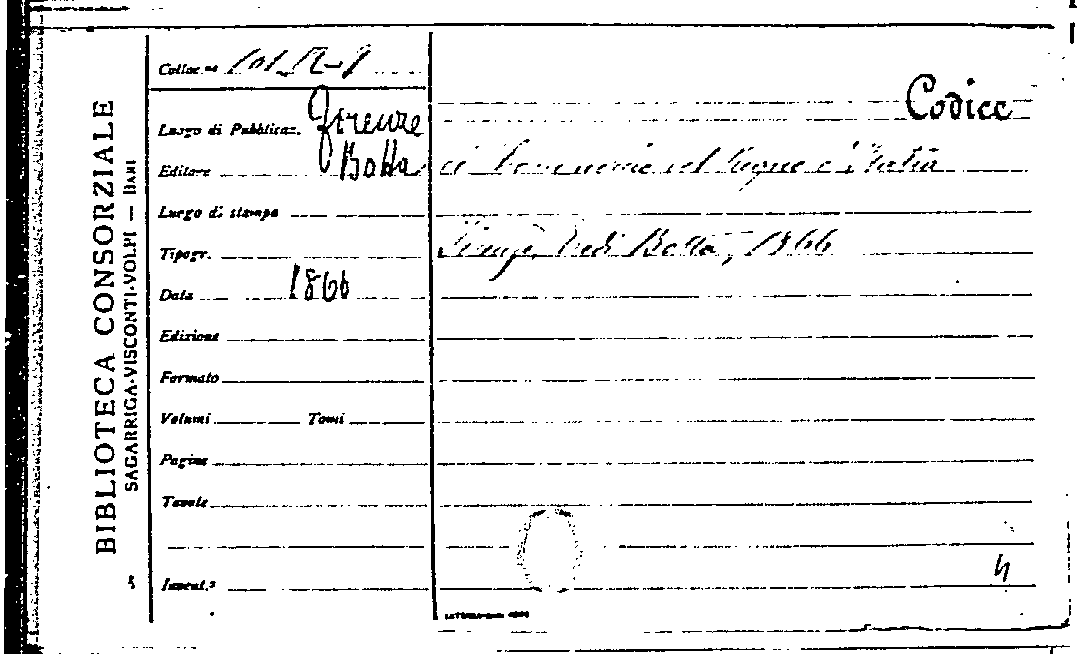 BIBLIOTECA CONSORZIALE
SAGARRIGA-VISCONTI-VOLPI — BARI
Colloc.ne
Luogo di Pubblicaz. Firenze
Editore Botta
Luogo di stampa
Tipogr.
Data 1866
Edizione
Formato
Volumi Tomi
Pagine
Tavole
Invent.°
Codice
di Commercio del Regno d'Italia
Botta, 1866
4